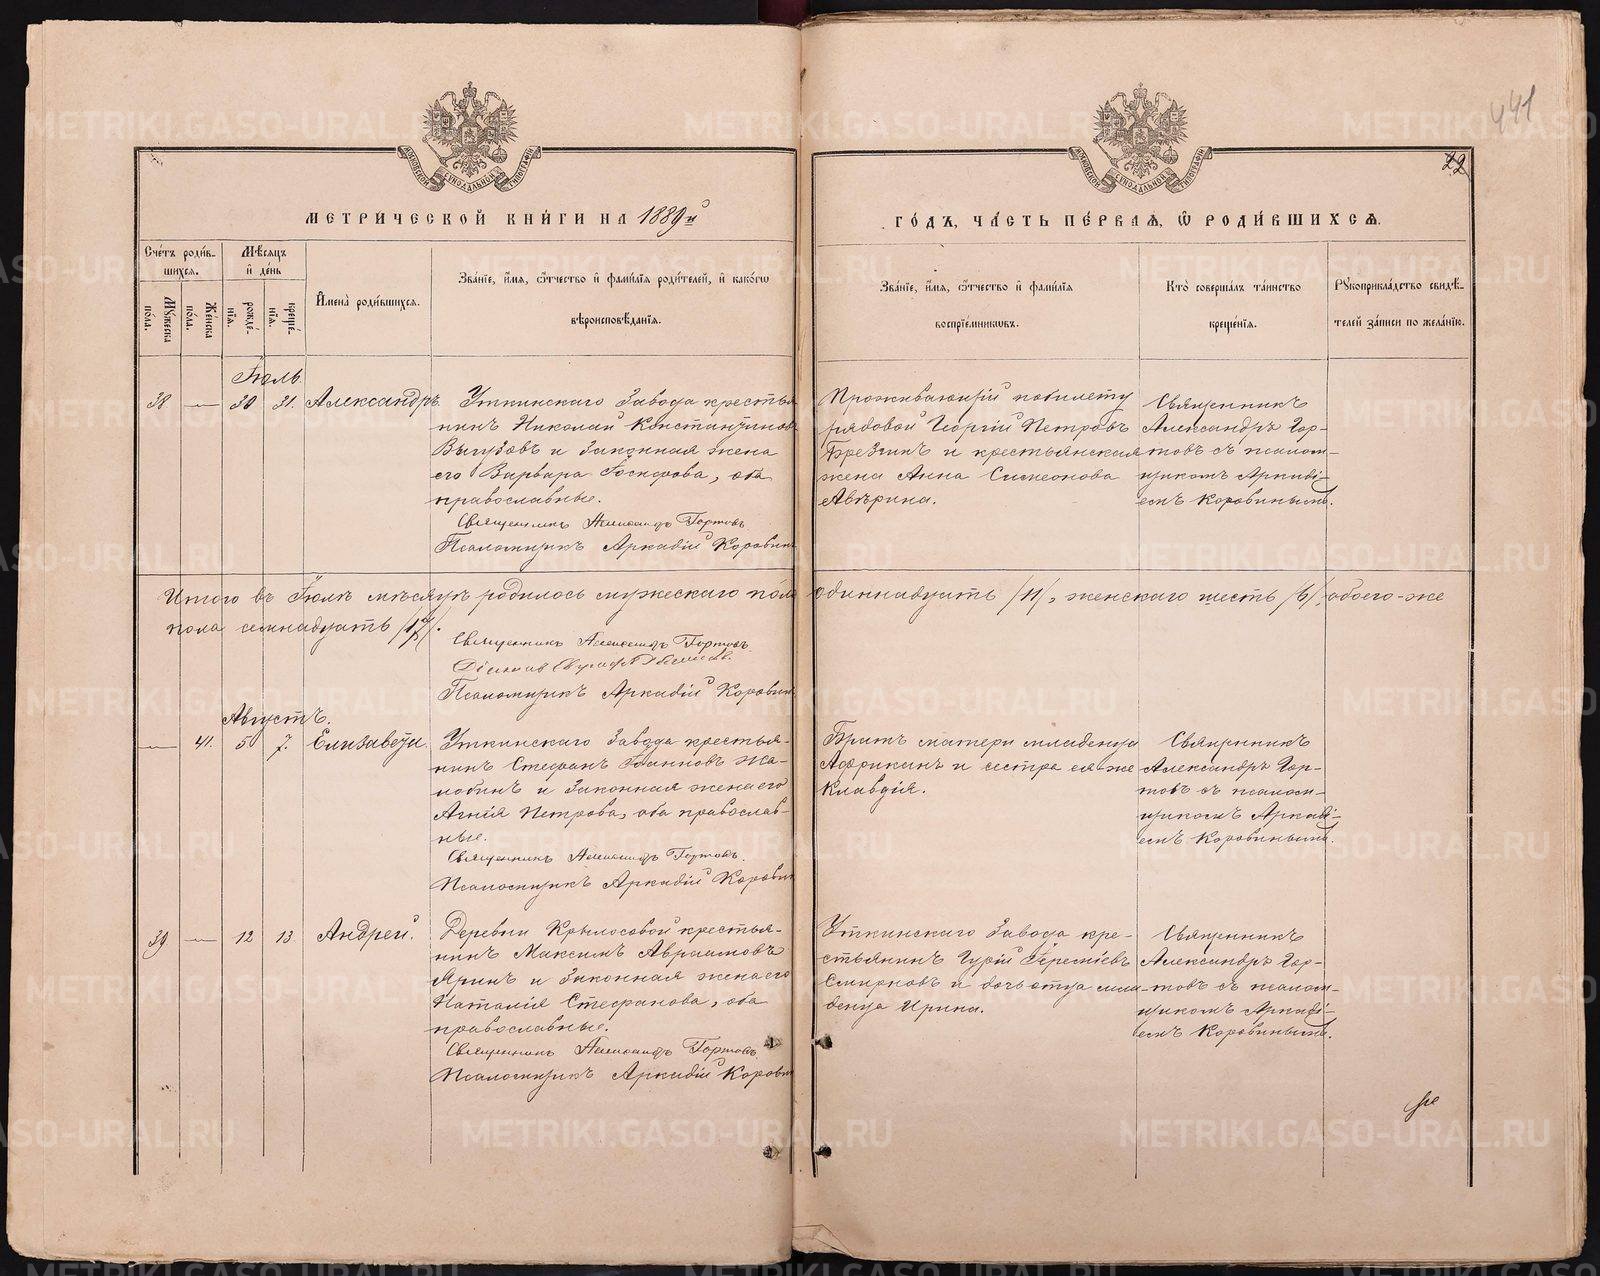 441
22
МЕТРИЧЕСКОЙ КНИГИ НА 1889й
ГОДЪ, ЧАСТЬ ПЕРВАЯ, Ѡ РОДИВШИХСЯ.
Счетъ родив-
шихся.
Мѹжеска
пола.
Женска
пола.
Мѣсяцъ
и день
рожде-
нія.
креще-
нія.
Имена родившихся.
Званіе, имя, ѿчество и фамилія родителей, и какогѡ
вѣроисповѣданія.
Званіе, имя, ѿчество и фамилія
воспріемникѡвъ.
Кто совершалъ таинство
крещенія.
Рѹкоприкладство свидѣ-
телей записи по желанію.
Іюль
38 — 30 31. Александръ.
Уткинскаго Завода крестья
нинъ Николай Константинов
Выгузовъ и законная жена
его Варвара Іосифова, оба
православные.
Священникъ Александръ Гортовъ
Псаломщикъ Аркадій Коровин
Проживающій по билету
рядовой Георгій Петровъ
Брезгинъ и крестьянская
жена Анна Симеонова
Авѣрина.
Священникъ
Александръ Гор-
товъ съ псалом-
щикомъ Аркаді-
емъ Коровинымъ.
Итого въ Іюлѣ мѣсяцѣ родилось мужескаго пола одиннадцать /11/, женскаго шесть /6/, обоего-же
пола семнадцать /17/.
Священникъ Александръ Гортовъ.
Псаломщикъ Аркадій Коровин
Августъ.
— 41. 5 7. Елизавета.
Уткинскаго Завода крестья-
нинъ Стефанъ Іоанновъ Жа-
лобинъ и законная жена его
Агнія Петрова, оба православ-
ные.
Священникъ Александръ Гортовъ.
Псаломщикъ Аркадій Коровин
Братъ матери младенца
Африканъ и сестра ея-же
Клавдія.
Священникъ
Александръ Гор-
товъ съ псалом-
щикомъ Аркаді-
емъ Коровинымъ.
39 — 12 13 Андрей.
Деревни Крылосовой крестья-
нинъ Максимъ Авраамовъ
Яринъ и законная жена его
Наталія Стефанова, оба
православные.
Священникъ Александръ Гортовъ.
Псаломщикъ Аркадій Коровин
Уткинскаго Завода кре-
стьянинъ Гурій Іереміевъ
Смирновъ и дочь отца мла-
денца Ирина.
Священникъ
Александръ Гор-
товъ съ псалом-
щикомъ Аркаді-
емъ Коровинымъ.
METRIKI.GASO-URAL.RU